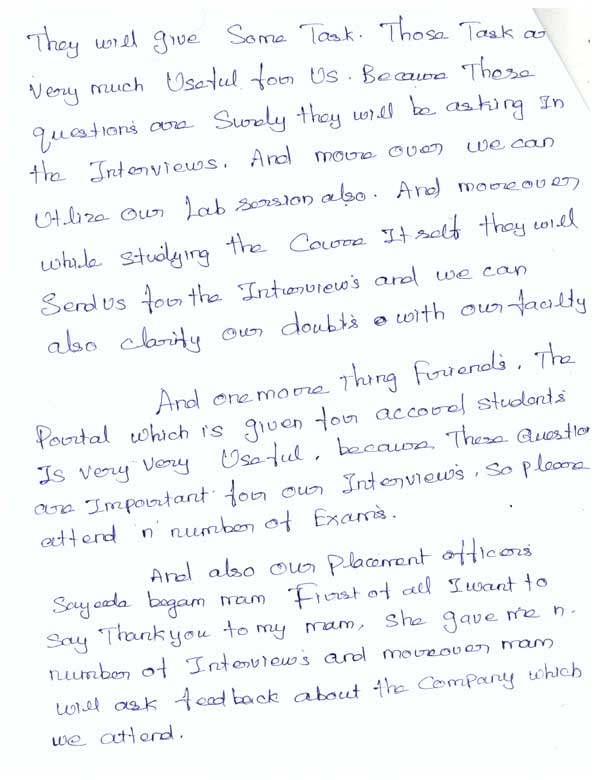 They will give Some Task. Those Task are
Very much Useful for Us. Because These
questions are Surely they will be asking In
the Interviews. And more over we can
Utilize our Lab session also. And moreover
while studying the Course It self they will
Send us for the Interview's and we can
also clarify our doubt's with our faculty
And one more Thing Friends, The
Portal which is given for accord students
Is very very Useful, because, These Question
are Important for our Interview's, So please
attend 'n' number of Exams.
And also our placement officers
Sayeeda begam mam First of all I want to
Say Thank you to my mam, she gave me n.
number of Interview's and moreover mam
will ask feedback about the company which
we attend.